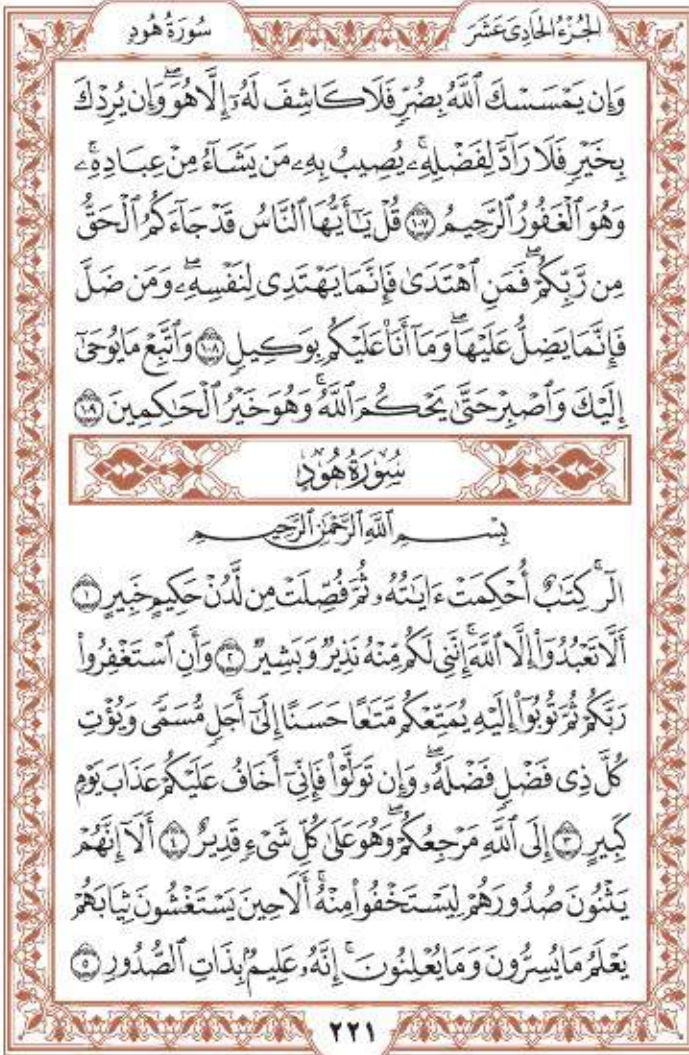 الجُزْءُ الحَادِىَ عَشَرَ
سُورَةُ هُودٍ
وَإِن يَمْسَسْكَ ٱللَّهُ بِضُرٍّ فَلَا كَاشِفَ لَهُۥٓ إِلَّا هُوَۖ وَإِن يُرِدْكَ
بِخَيْرٍ فَلَا رَآدَّ لِفَضْلِهِۦۚ يُصِيبُ بِهِۦ مَن يَشَآءُ مِنْ عِبَادِهِۦۚ
وَهُوَ ٱلْغَفُورُ ٱلرَّحِيمُ ١٠٧ قُلْ يَـٰٓأَيُّهَا ٱلنَّاسُ قَدْ جَآءَكُمُ ٱلْحَقُّ
مِن رَّبِّكُمْۖ فَمَنِ ٱهْتَدَىٰ فَإِنَّمَا يَهْتَدِى لِنَفْسِهِۦۖ وَمَن ضَلَّ
فَإِنَّمَا يَضِلُّ عَلَيْهَاۖ وَمَآ أَنَا۠ عَلَيْكُم بِوَكِيلٍ ١٠٨ وَٱتَّبِعْ مَا يُوحَىٰٓ
إِلَيْكَ وَٱصْبِرْ حَتَّىٰ يَحْكُمَ ٱللَّهُۚ وَهُوَ خَيْرُ ٱلْحَـٰكِمِينَ ١٠٩
سُورَةُ هُودٍ
بِسْمِ ٱللَّهِ ٱلرَّحْمَـٰنِ ٱلرَّحِيمِ
الٓرۚ كِتَـٰبٌ أُحْكِمَتْ ءَايَـٰتُهُۥ ثُمَّ فُصِّلَتْ مِن لَّدُنْ حَكِيمٍ خَبِيرٍ ١
أَلَّا تَعْبُدُوٓا۟ إِلَّا ٱللَّهَۚ إِنَّنِى لَكُم مِّنْهُ نَذِيرٌ وَبَشِيرٌ ٢ وَأَنِ ٱسْتَغْفِرُوا۟
رَبَّكُمْ ثُمَّ تُوبُوٓا۟ إِلَيْهِ يُمَتِّعْكُم مَّتَـٰعًا حَسَنًا إِلَىٰٓ أَجَلٍ مُّسَمًّى وَيُؤْتِ
كُلَّ ذِى فَضْلٍ فَضْلَهُۥۖ وَإِن تَوَلَّوْا۟ فَإِنِّىٓ أَخَافُ عَلَيْكُمْ عَذَابَ يَوْمٍ
كَبِيرٍ ٣ إِلَى ٱللَّهِ مَرْجِعُكُمْۖ وَهُوَ عَلَىٰ كُلِّ شَىْءٍ قَدِيرٌ ٤ أَلَآ إِنَّهُمْ
يَثْنُونَ صُدُورَهُمْ لِيَسْتَخْفُوا۟ مِنْهُۚ أَلَا حِينَ يَسْتَغْشُونَ ثِيَابَهُمْ
يَعْلَمُ مَا يُسِرُّونَ وَمَا يُعْلِنُونَۚ إِنَّهُۥ عَلِيمٌۢ بِذَاتِ ٱلصُّدُورِ ٥
٢٢١